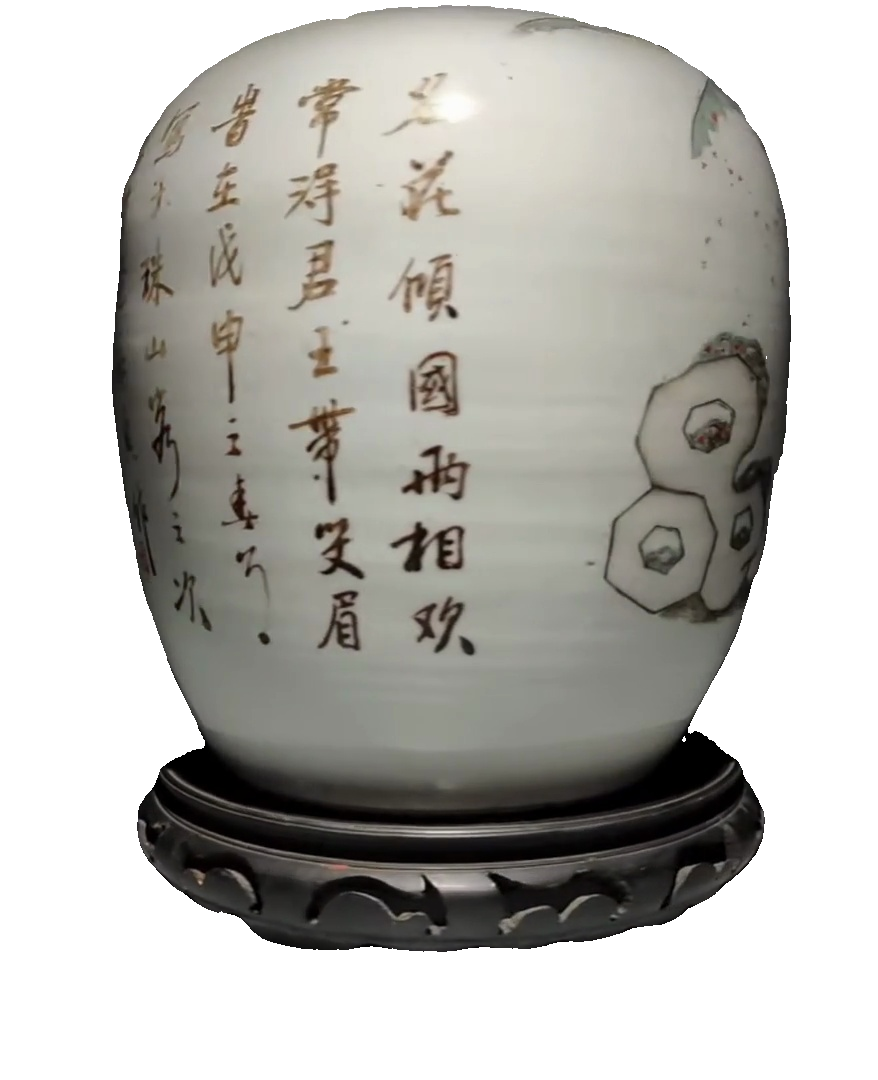 名花傾國兩相欢
常淂君王帶笑眉
旹在戊申之春月
寫於珠山客之次
作